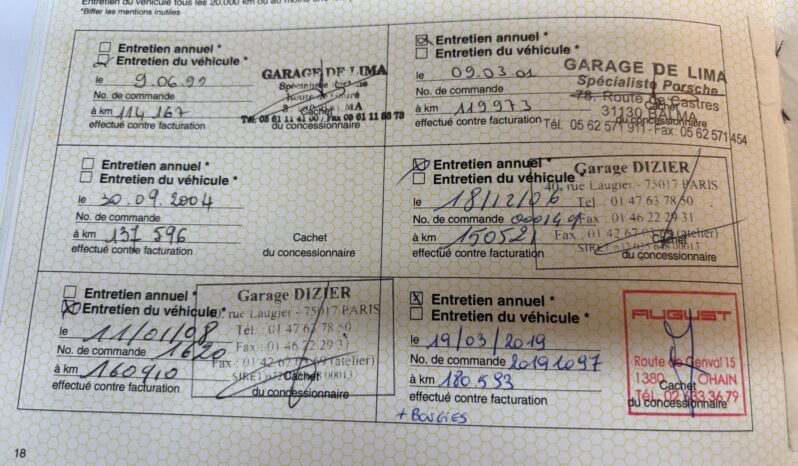 Entretien du véhicule tous les 20.000 km ou au moins
*Biffer les mentions inutiles
Entretien annuel *
Entretien du véhicule *
le 9.06.99
No. de commande
à km 114 167
effectué contre facturation
GARAGE DE LIMA
Cachet
du concessionnaire
Entretien annuel *
Entretien du véhicule *
le 09.03.01
No. de commande
à km 119973
effectué contre facturation
GARAGE DE LIMA
Spécialiste Porsche
78, Route de Castres
31130 BALMA
Tél. 05 62 571 911 - Fax: 05 62 571 454
Cachet
du concessionnaire
Entretien annuel *
Entretien du véhicule *
le 30.09.2004
No. de commande
à km 137 596
effectué contre facturation
Cachet
du concessionnaire
Entretien annuel *
Entretien du véhicule *
le 18/12/06
No. de commande
à km 150521
effectué contre facturation
Garage DIZIER
40, rue Laugier - 75017 PARIS
Tel : 01 47 63 78 50
Fax : 01 46 22 29 31
Fax : 01 42 67 03 69 (atelier)
Cachet
du concessionnaire
Entretien annuel *
Entretien du véhicule *
le 11/01/08
No. de commande 1620
à km 160910
effectué contre facturation
Garage DIZIER
rue Laugier - 75017 PARIS
Tél. : 01 47 63 78 50
Fax : 01 46 22 29 31
Fax : 01 42 67 03 69 (atelier)
Cachet
du concessionnaire
Entretien annuel *
Entretien du véhicule *
le 19/03/2019
No. de commande 20191097
à km 180.593
effectué contre facturation
+ BOUGIES
AUGUST
Route de Genval 15
1380 OHAIN
Tél. 02 633 36 79
Cachet
du concessionnaire
18